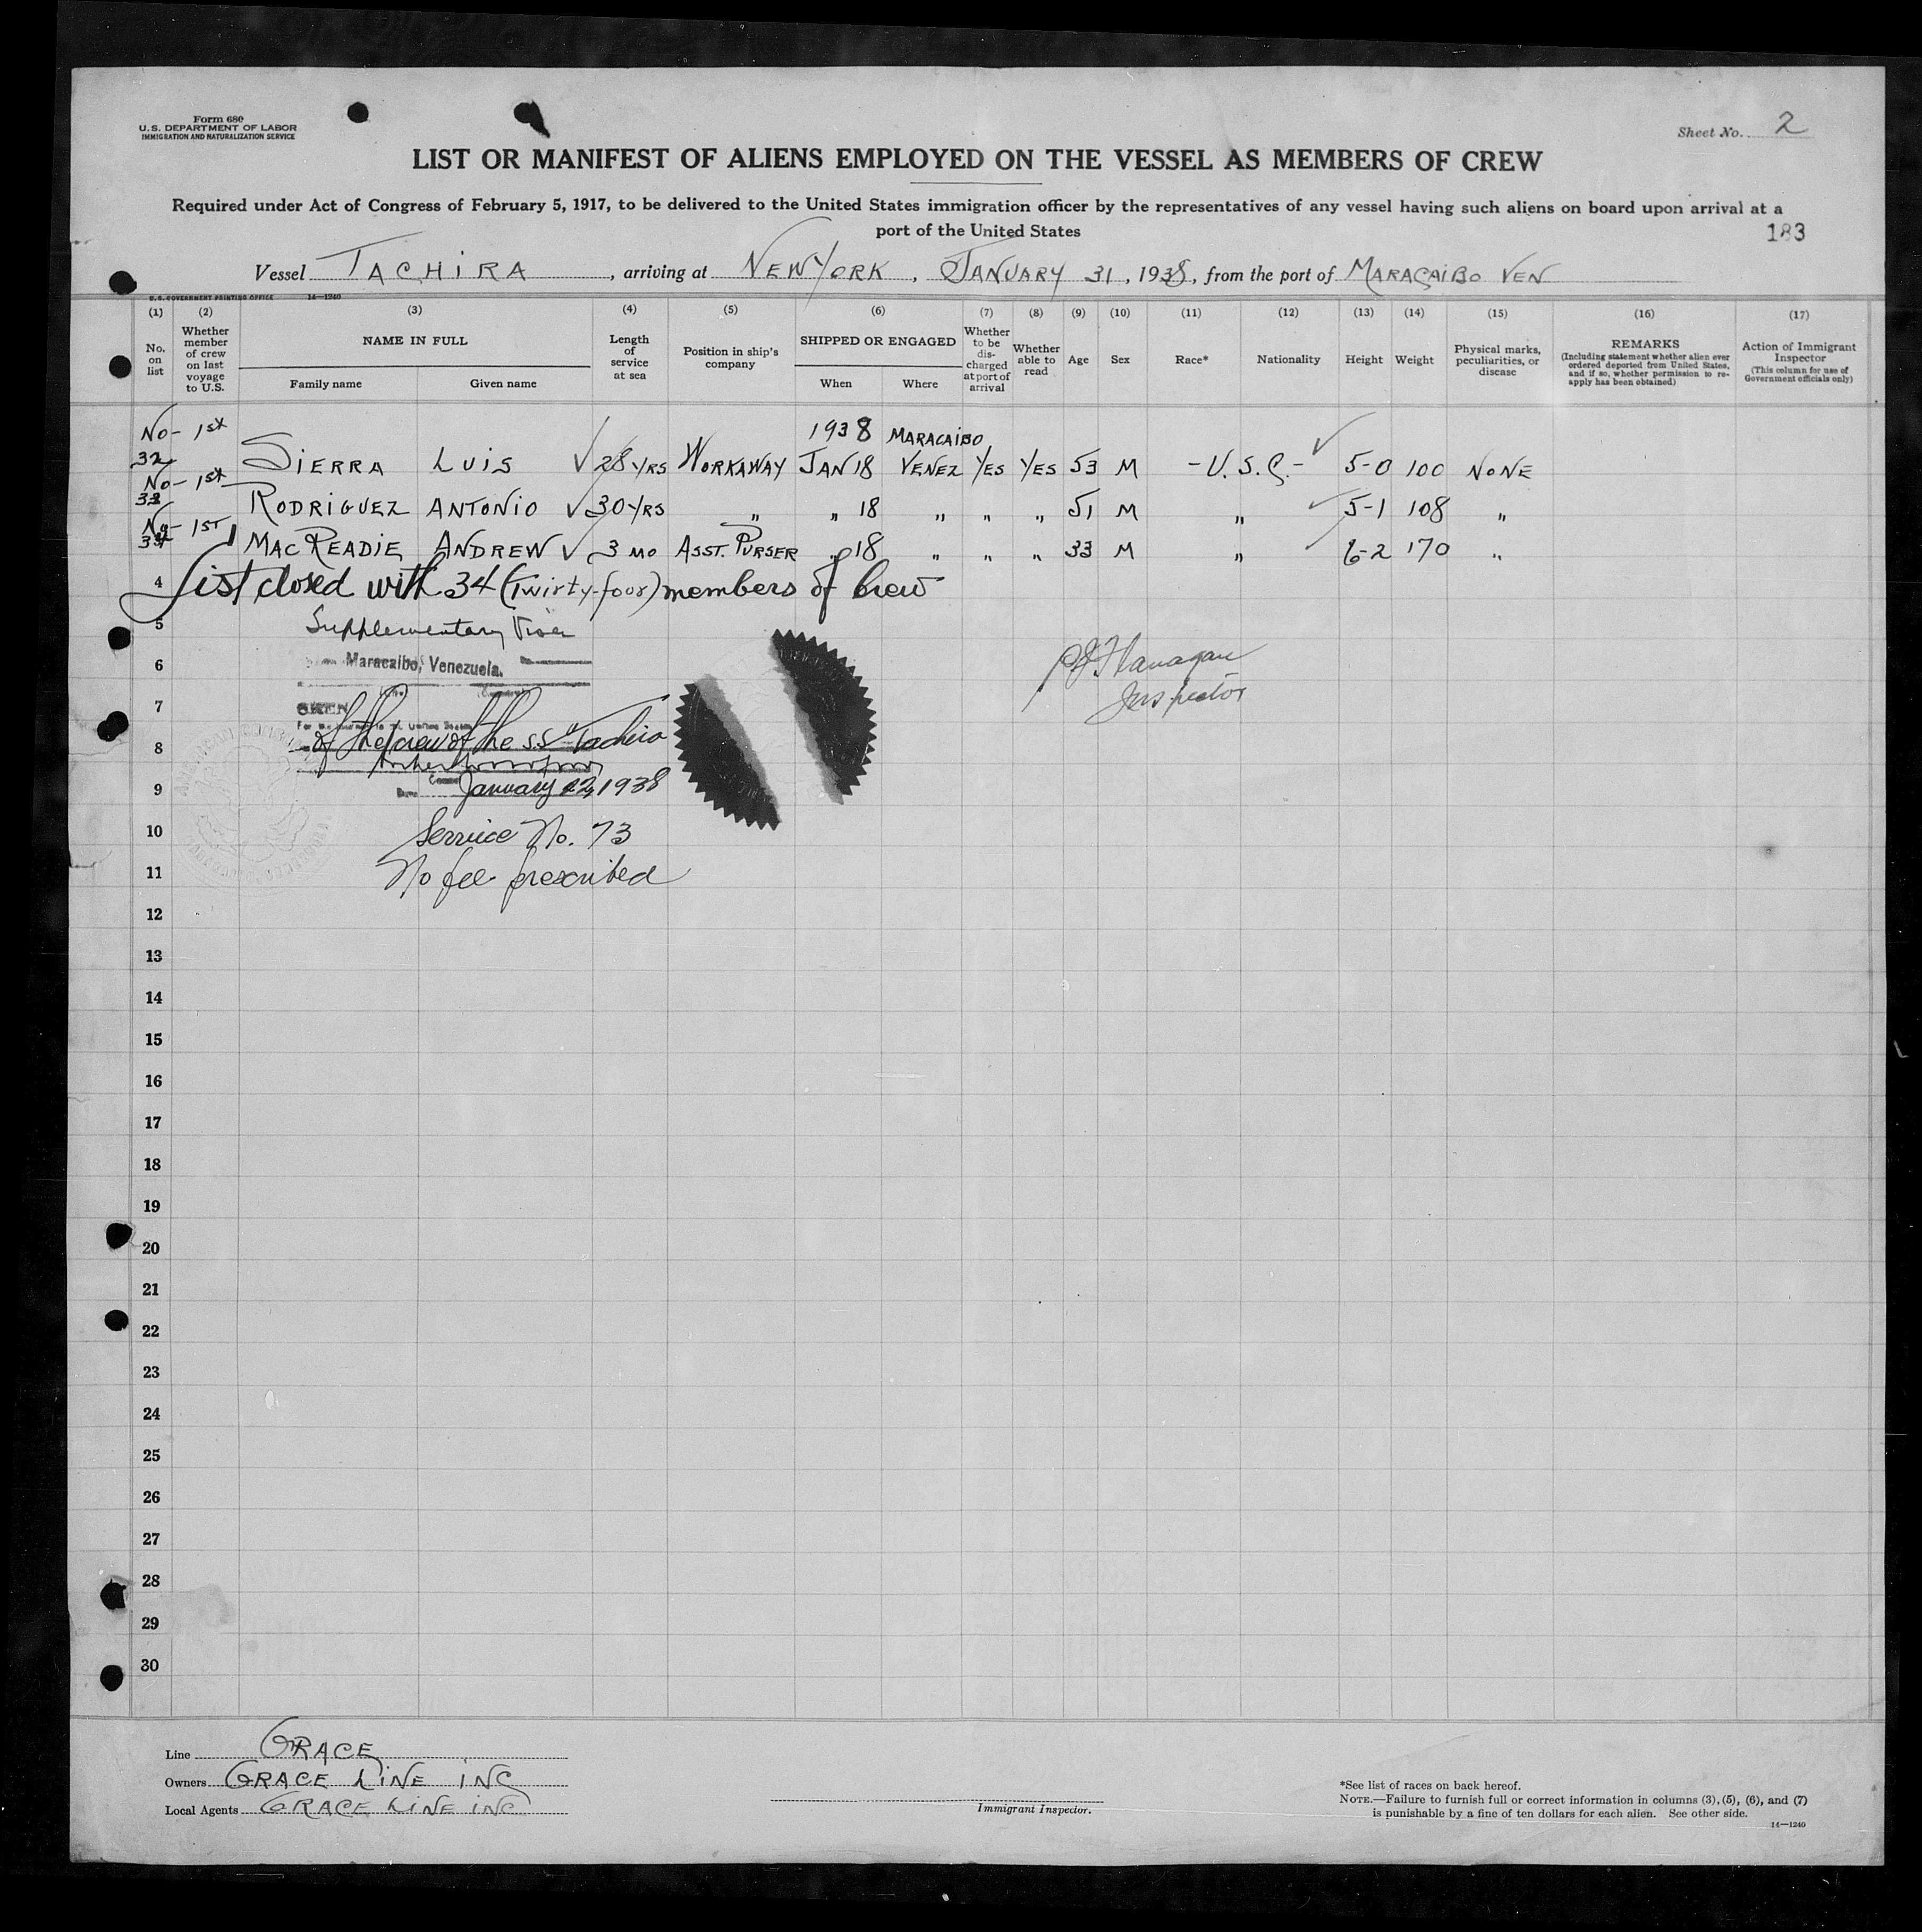 Form 680
U.S. DEPARTMENT OF LABOR
IMMIGRATION AND NATURALIZATION SERVICE
Sheet No. 2
LIST OR MANIFEST OF ALIENS EMPLOYED ON THE VESSEL AS MEMBERS OF CREW
Required under Act of Congress of February 5, 1917, to be delivered to the United States immigration officer by the representatives of any vessel having such aliens on board upon arrival at a
port of the United States
183
Vessel TACHIRA, arriving at NEW YORK, JANUARY 31, 1938, from the port of MARACAIBO VEN
U.S. GOVERNMENT PRINTING OFFICE 14—1240
(1) (2) (3) (4) (5) (6) (7) (8) (9) (10) (11) (12) (13) (14) (15) (16) (17)
No. on list
Whether member of crew on last voyage to U.S.
NAME IN FULL
Family name
Given name
Length of service at sea
Position in ship's company
SHIPPED OR ENGAGED
When
Where
Whether to be discharged at port of arrival
Whether able to read
Age
Sex
Race*
Nationality
Height
Weight
Physical marks, peculiarities, or disease
REMARKS
(Including statement whether alien ever ordered deported from United States, and if so, whether permission to reapply has been obtained)
Action of Immigrant Inspector
(This column for use of Government officials only)
No - 1st 1938 MARACAIBO
32 SIERRA LUIS 28 YRS WORKAWAY JAN 18 VENEZ YES YES 53 M - U.S.C. - 5-0 100 NONE
No - 1st
33 RODRIGUEZ ANTONIO 30 YRS " " 18 " " " 51 M " 5-1 108 "
No - 1ST
34 MACREADIE ANDREW 3 MO ASST. PURSER " 18 " " " 33 M " 6-2 170 "
4 List closed with 34 (Twirty-four) members of Crew
5 Supplementary Visa
6 Maracaibo, Venezuela.
P J Flanagan
Inspector
7 SEEN
8 of the crew of the S.S. "Tachira
9 January 22, 1938
10 Service No. 73
11 No fee prescribed
12
13
14
15
16
17
18
19
20
21
22
23
24
25
26
27
28
29
30
Line GRACE
Owners GRACE LINE INC
Local Agents GRACE LINE INC
Immigrant Inspector.
*See list of races on back hereof.
NOTE.—Failure to furnish full or correct information in columns (3), (5), (6), and (7)
is punishable by a fine of ten dollars for each alien. See other side.
14—1240